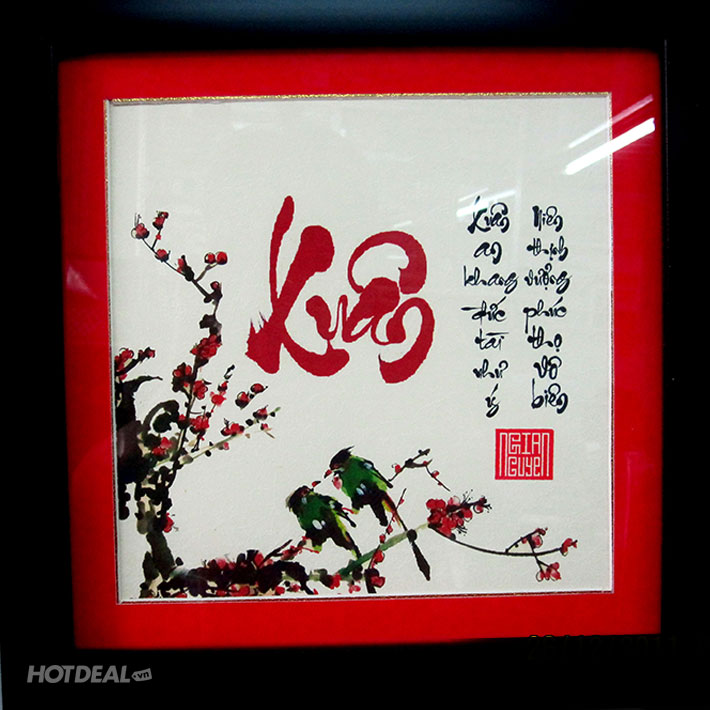 Xuân
Xuân an khang đức tài như ý
Niên thịnh vượng phúc thọ vô biên
HOTDEAL.vn